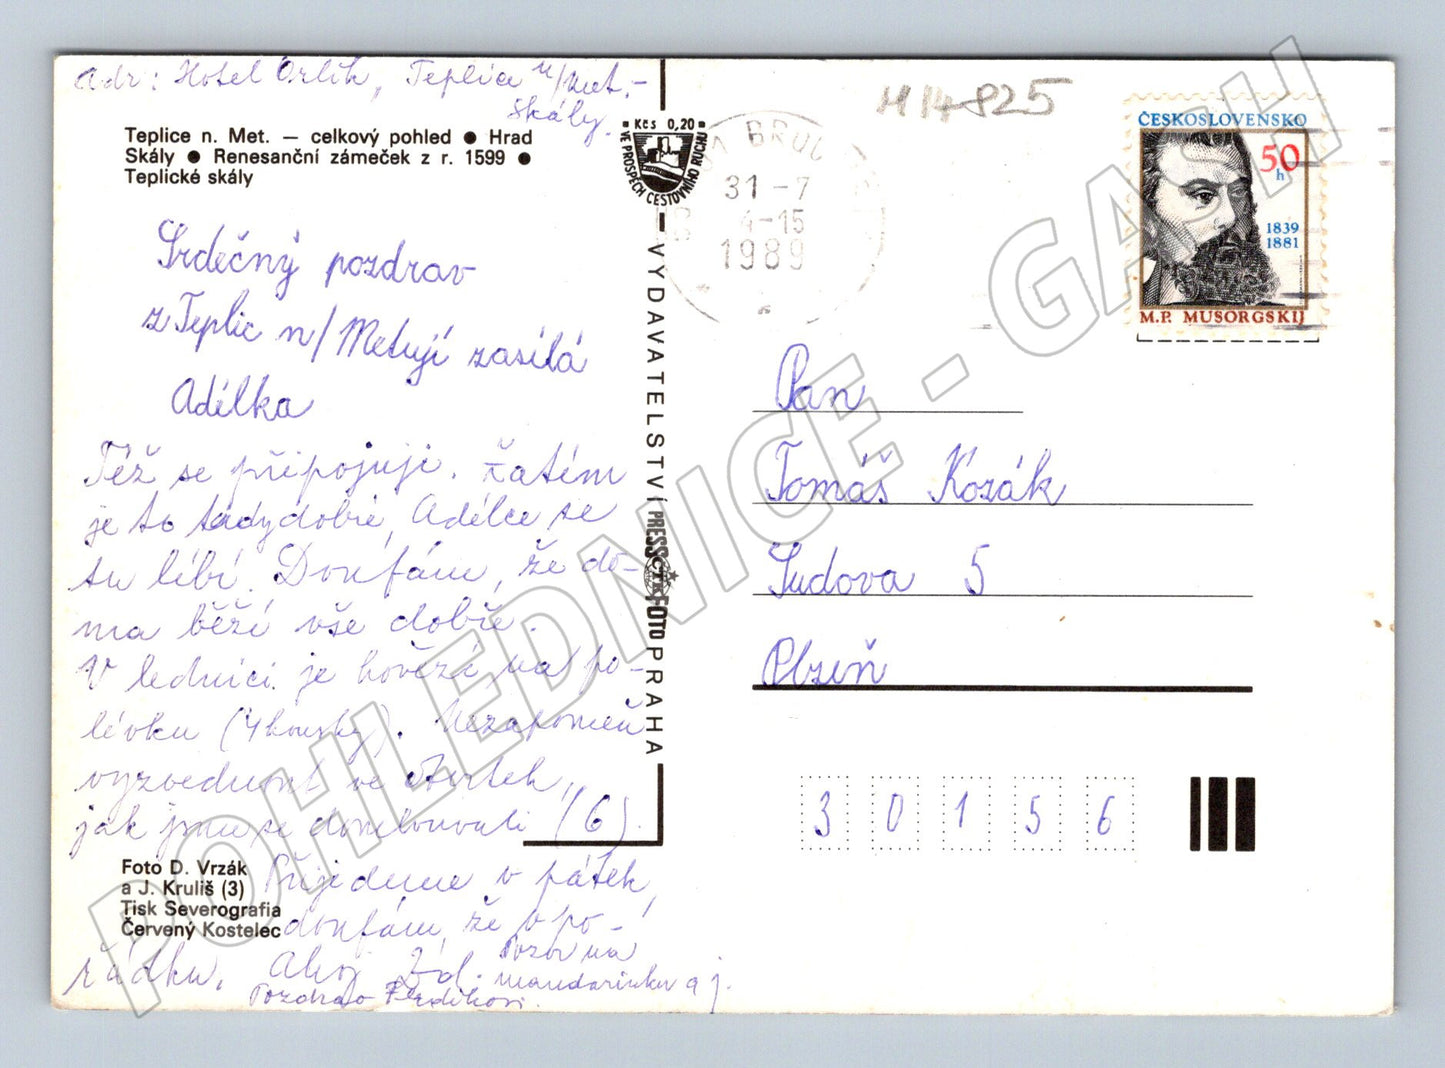 adr: Hotel Orlík, Teplice n/Met.-
skály.
Teplice n. Met. — celkový pohled ● Hrad
Skály ● Renesanční zámeček z r. 1599 ●
Teplické skály
Srdečný pozdrav
z Teplic n/Metují zasílá
Adélka
Též se připojuji. Zatím
je to tady dobré, Adélce se
tu líbí. Doufám, že do-
ma běží vše dobře.
V lednici je hovězí na po-
lévku (4 kousky). Nezapomeň
vyzvednout ve čtvrtek,
jak jsme se domlouvali (6).
Přijedeme v pátek,
doufám, že v po-
řádku. Ahoj Zd.
Pozor na
mandarinku a j.
Pozdrav
Foto D. Vrzák
a J. Kruliš (3)
Tisk Severografia
Červený Kostelec
Kčs 0,20
VE PROSPĚCH CESTOVNÍHO RUCHU
VYDAVATELSTVÍ PRESSFOTO PRAHA
ČTK
31 -7
4-15
1989
M 14825
ČESKOSLOVENSKO
50
h
1839
1881
M.P. MUSORGSKIJ
Pan
Tomáš Kozák
Sudova 5
Plzeň
3 0 1 5 6
POHLEDNICE - GASH